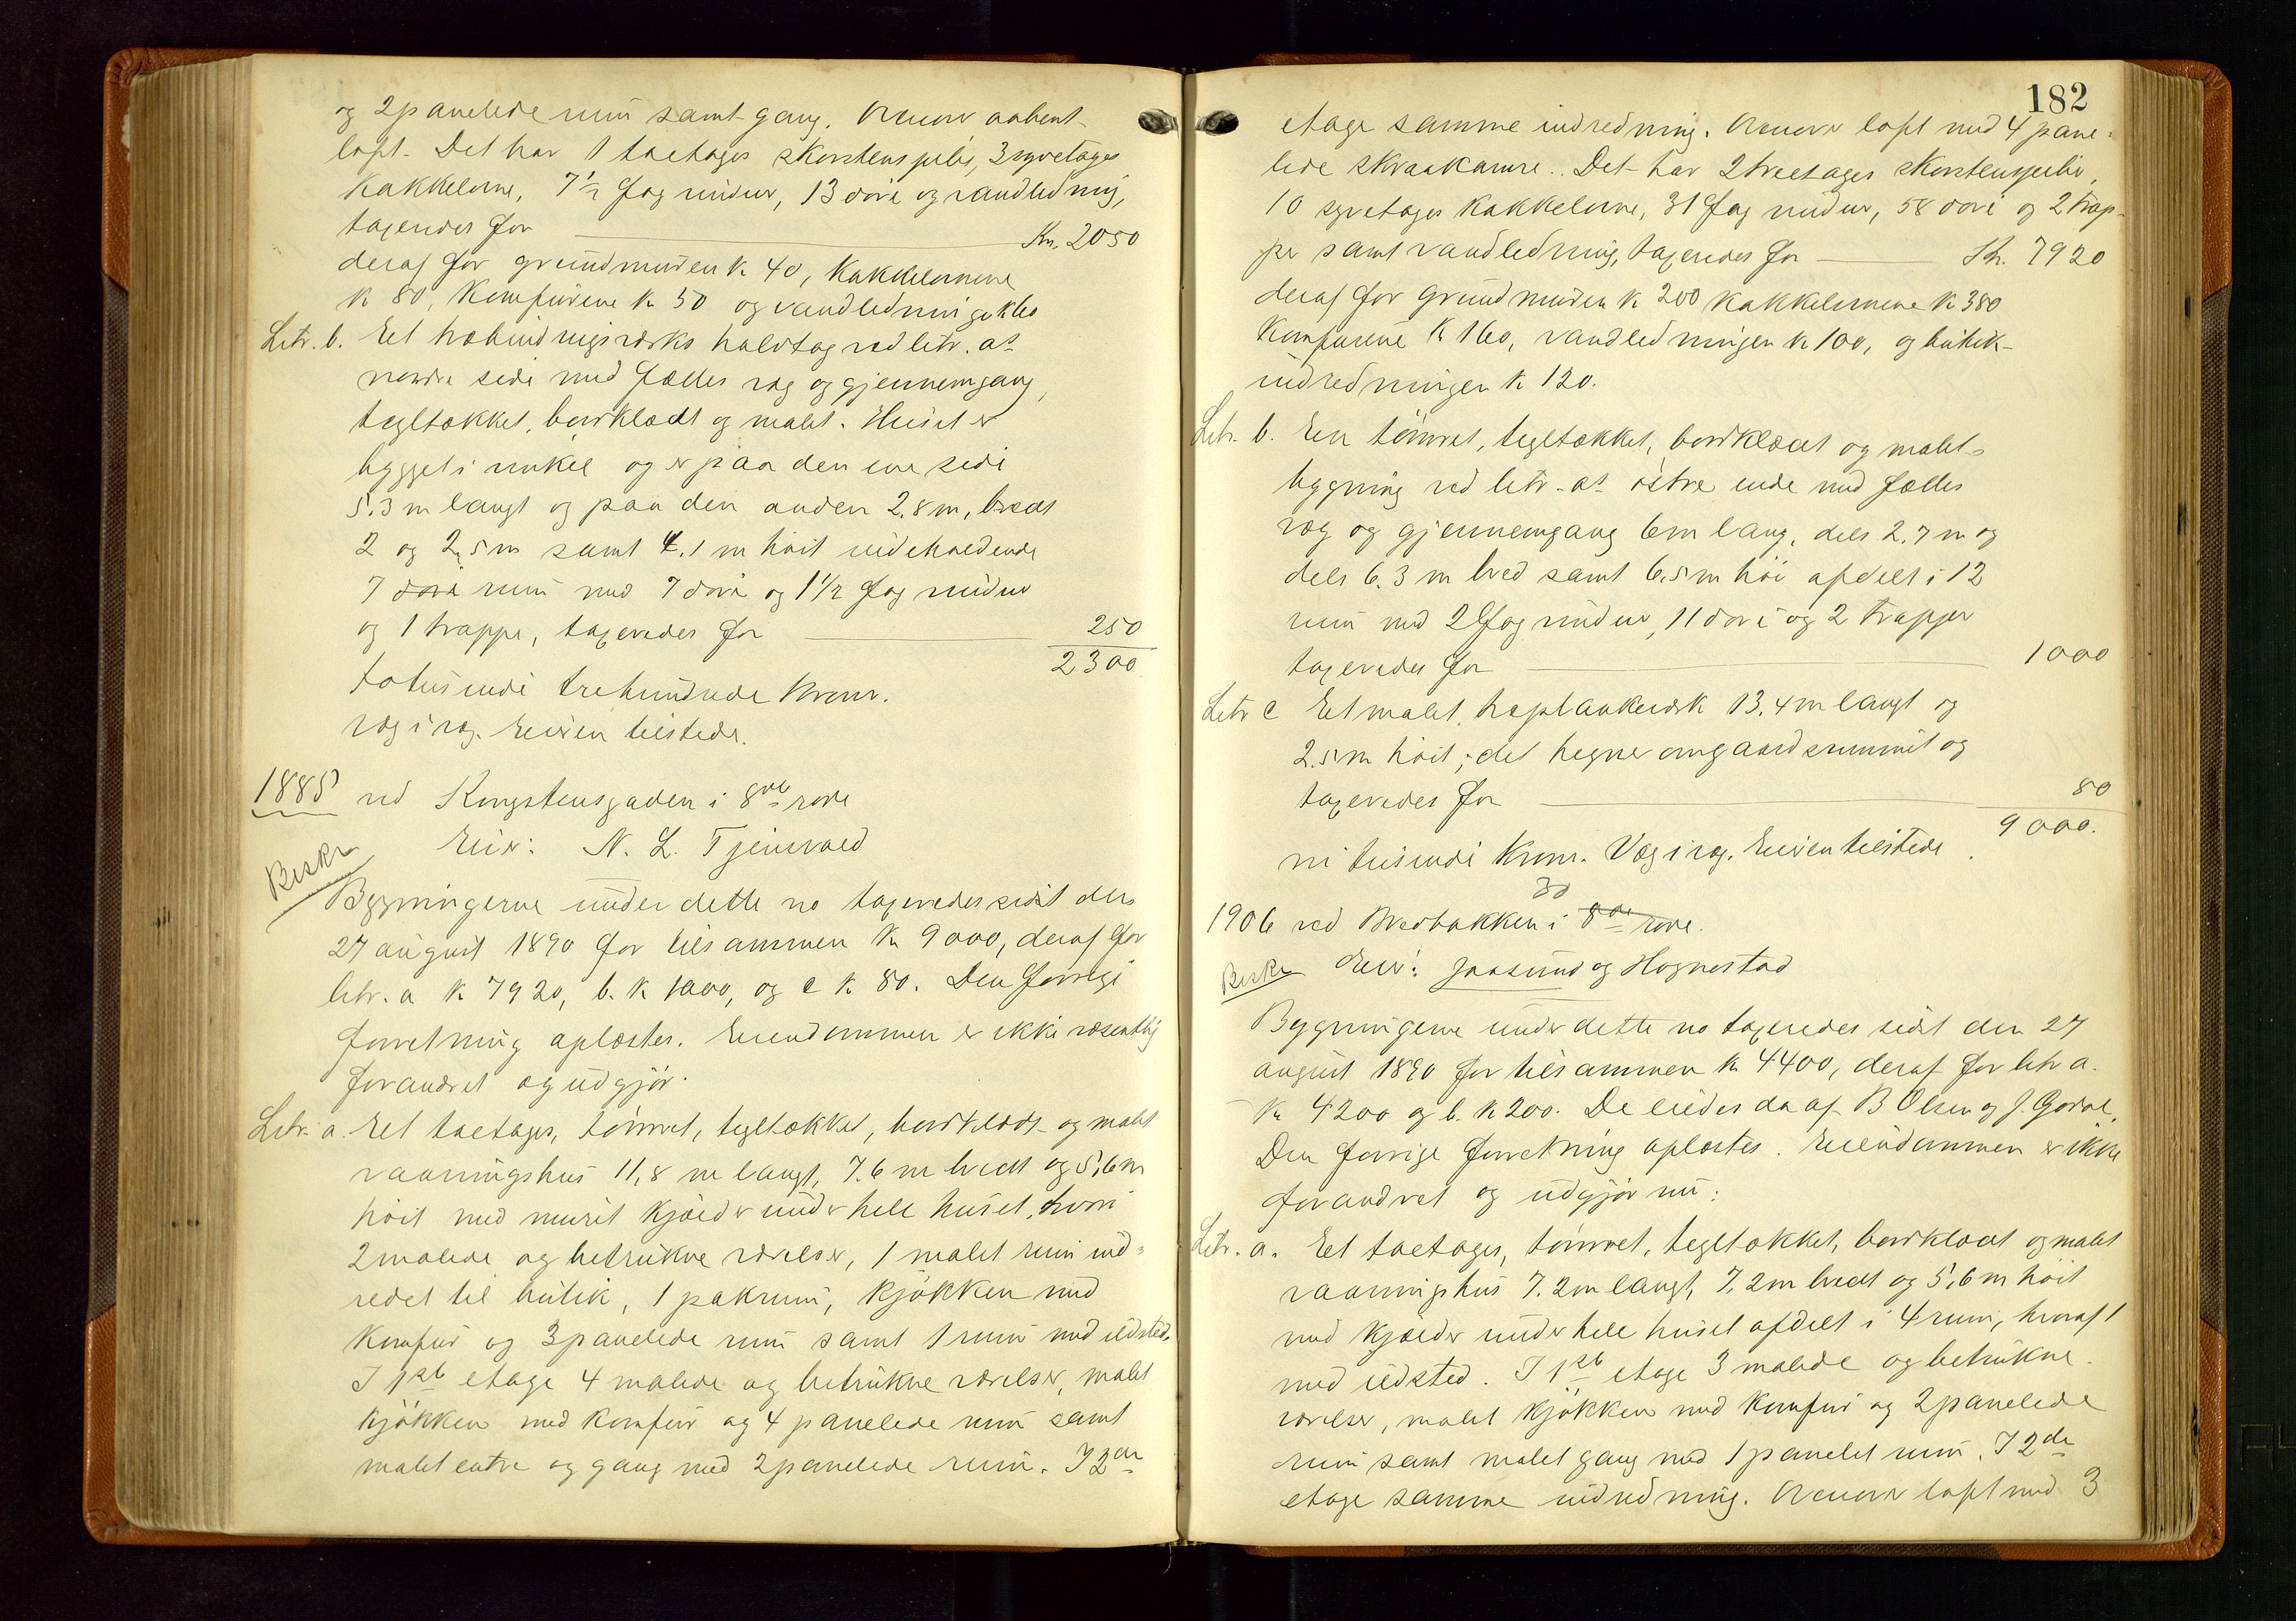 og 2 panelede rum samt gang. Ovenover aabent
loft. Det har 1 toetages skorstenspibe, 3 syvetages
kakkelovne, 7 1/2 fag vinduer, 13 døre og vandledning,
taxeredes for Kr. 2050
deraf for grundmuren k 40, kakkelovnene
k 80, komfurene k 50 og vandledningen k 60
Litr. b. Et træbindingsværks halvtag ved litr. as
nordre side med fælles væg og gjennemgang,
tegltækket, bordklædt og malet. Huset er
bygget i vinkel og er paa den ene side
5.3 m langt og paa den anden 2.8 m, bredt
2 og 2,5 m samt 4.1 m høit indeholdende
7 rum med 7 døre og 1 1/2 fag vinduer
og 1 trappe, taxeredes for 250
2300
totusinde trehundrede Kroner.
Væg i væg. Eieren tilstede.
1885 ved Kongstensgaden i 8de rode
Eier: N. L. Tjensvold
Beskr
Bygningerne under dette no taxeredes sidst den
27 august 1890 for tilsammen Kr 9000, deraf for
litr. a k 7920, b. k 1000, og c k 80. Den forrige
forretning oplæstes. Eiendommen er ikke væsentlig
forandret og udgjør.
Litr. a. Et toetages, tømret, tegltækket, bordklædt og malet
vaaningshus 11,8 m langt, 7.6 m bredt og 5,6 m
høit med muret kjælder under hele huset, hvori
2 malede og betrukne værelser, 1 malet rum ind-
redet til butik, 1 pakrum, kjøkken med
komfur og 3 panelede rum samt 1 rum med ildsted.
I 1ste etage 4 malede og betrukne værelser, malet
kjøkken med komfur og 4 panelede rum samt
malet entre og gang med 2 panelede rum. I 2den
182
etage samme indredning. Ovenover loft med 4 pane-
lede skraakamre. Det har 2 treetages skorstenspiber,
10 syvetages kakkelovne, 31 fag vinduer, 58 døre og 2 trap-
per samt vandledning, taxeredes for Kr. 7920
deraf for grundmuren k 200 kakkelovnene k 380
komfurene k 160, vandledningen k 100, og butik-
indredningen k 120.
Litr. b. En tømret, tegltækket, bordklædt og malet
bygning ved litr. as østre ende med fælles
væg og gjennemgang 6 m lang, dels 2.7 m og
dels 6.3 m bred samt 6.5 m høi afdelt i 12
rum med 2 fag vinduer, 11 døre og 2 trapper
taxeredes for 1000
Litr c Et malet træplankeværk 13.4 m langt og
2.5 m høit; det hegner om gaardsrummet og
taxeredes for 80
9000.
ni tusinde Kroner. Væg i væg. Eieren tilstede
30
1906 ved Bredbakken i 8de rode.
Beskr Eier: Jaasund og Hognestad
Bygningerne under dette no taxeredes sidst den 27
august 1890 for tilsammen k 4400, deraf for litr a.
k 4200 og b. k 200. De eiedes da af B Olsen og J. Godal.
Den forrige forretning oplæstes. Eiendommen er ikke
forandret og udgjør nu:
Litr. a. Et toetages, tømret, tegltækket, bordklædt og malet
vaaningshus 7.2 m langt, 7,2 m bredt og 5,6 m høit
med kjælder under hele huset afdelt i 4 rum, hvoraf 1
med ildsted. I 1ste etage 3 malede og betrukne
værelser, malet kjøkken med komfur og 2 panelede
rum samt malet gang med 1 panelet rum. I 2de
etage samme indredning. Ovenover loft med 3